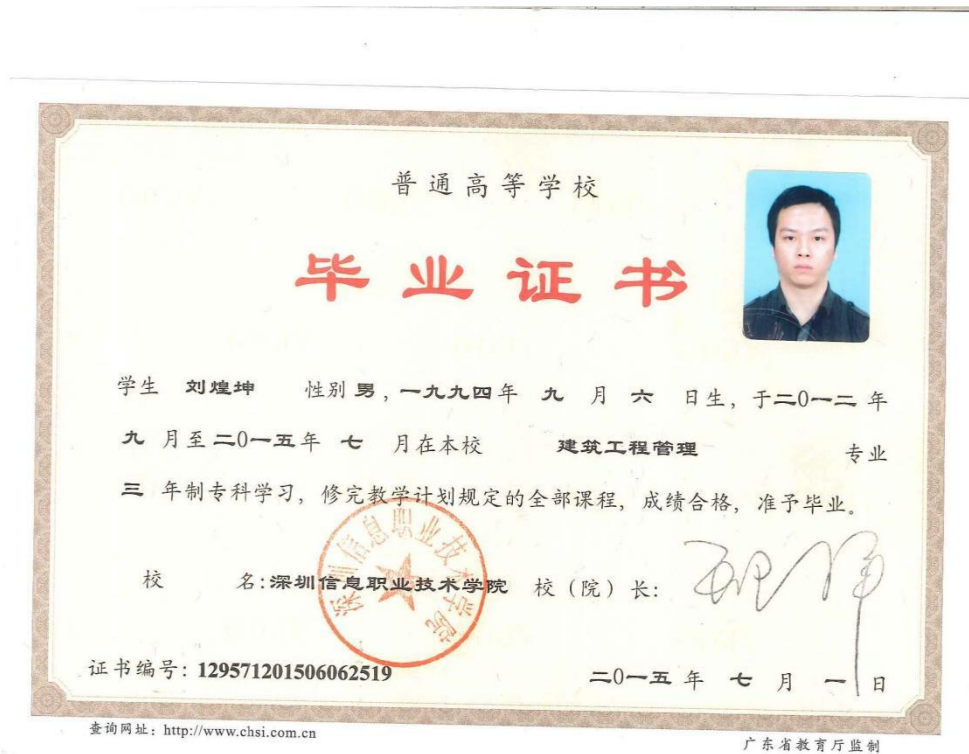 普通高等学校
毕业证书
学生 刘煌坤 性别 男，一九九四年 九 月 六 日生，于二0一二 年
九 月至二0一五年 七 月在本校 建筑工程管理 专业
三 年制专科学习，修完教学计划规定的全部课程，成绩合格，准予毕业。
校 名：深圳信息职业技术学院 校（院）长：
深圳信息职业技术学院
证书编号：129571201506062519 二0一五 年 七 月 一 日
查询网址：http://www.chsi.com.cn 广东省教育厅监制